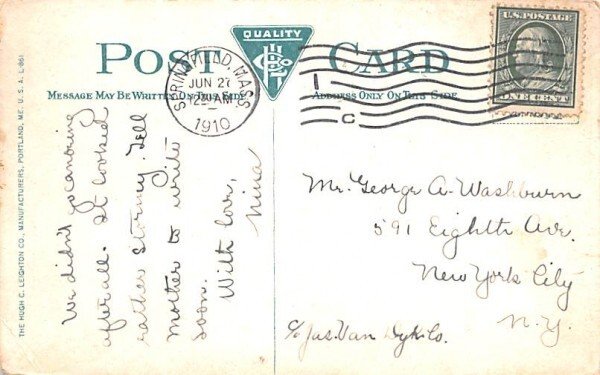 POST CARD
QUALITY
MESSAGE MAY BE WRITTEN ON THIS SIDE
ADDRESS ONLY ON THIS SIDE
SPRINGFIELD, MASS.
JUN 27
12 - AM
1910
U.S. POSTAGE
ONE CENT
THE HUGH C. LEIGHTON CO., MANUFACTURERS, PORTLAND, ME. U. S. A. L 861
We didn't go canoeing
after all. It looked
rather stormy. Tell
mother to write
soon.
With love,
Nina
Mr. George A. Washburn
591 Eighth Ave.
New York City
N.Y.
c/o Jas. Van Dyk Co.